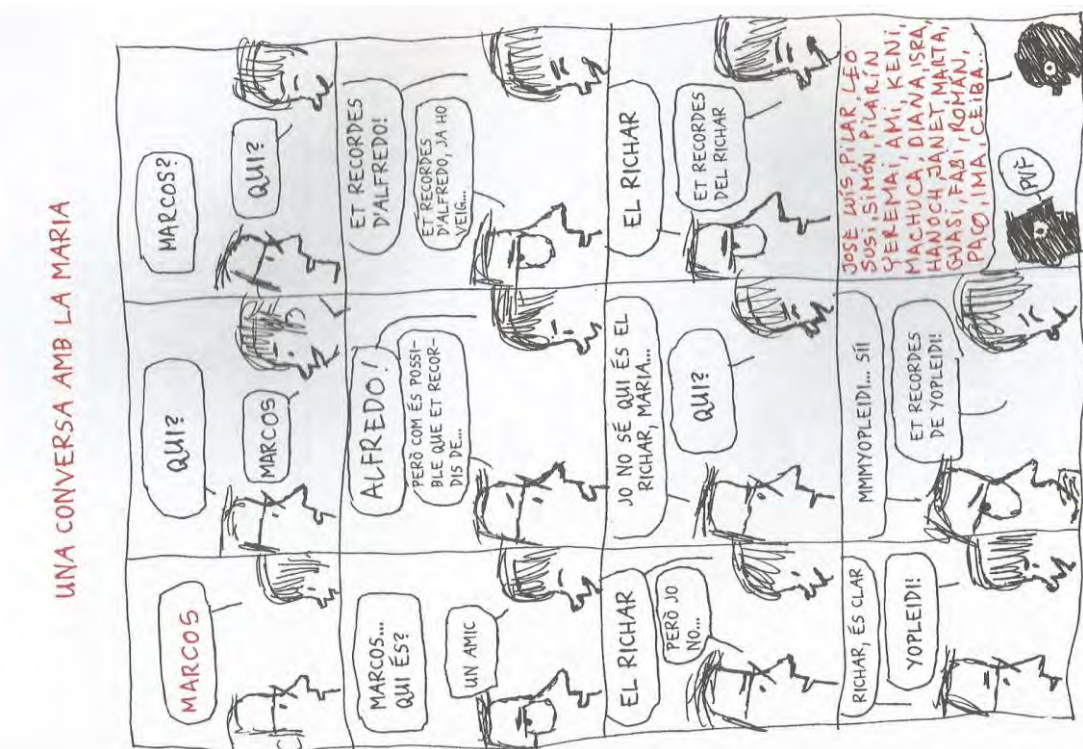 UNA CONVERSA AMB LA MARIA
MARCOS
QUI?
MARCOS
MARCOS?
QUI?
MARCOS...
QUI ÉS?
UN AMIC
ALFREDO!
PERÒ COM ÉS POSSI-
BLE QUE ET RECOR-
DIS DE...
ET RECORDES
D'ALFREDO!
ET RECORDES
D'ALFREDO, JA HO
VEIG...
EL RICHAR
PERÒ JO
NO...
JO NO SÉ QUI ÉS EL
RICHAR, MARIA...
QUI?
EL RICHAR
ET RECORDES
DEL RICHAR
RICHAR, ÉS CLAR
YOPLEIDI!
MMMYOPLEIDI... SÍ!
ET RECORDES
DE YOPLEIDI!
JOSE LUÍS, PILAR, LEO
SUSI, SIMÓN, PILARÍN
YEREMAI, AMI, KENI,
MACHUCA, DIANA, ISRA,
HANOCH, JANET, MARTA,
GUASI, FABI, ROMÁN,
PACO, IMA, CEIBA...